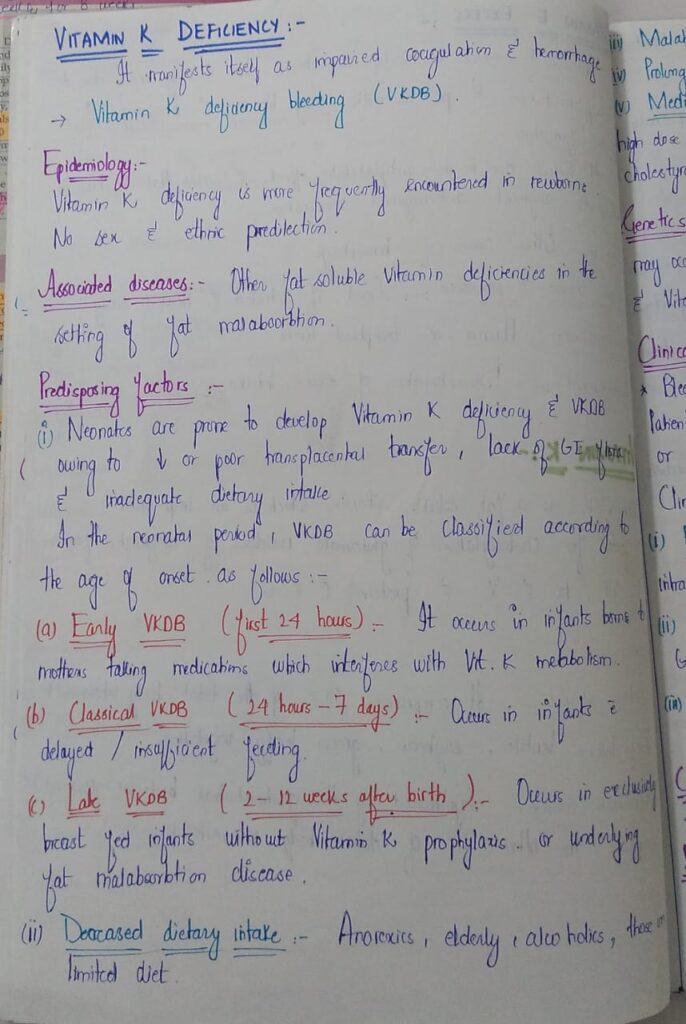 VITAMIN K DEFICIENCY :-
It manifests itself as impaired coagulation & hemorrhage
→ Vitamin K deficiency bleeding (VKDB).
Epidemiology:-
Vitamin K deficiency is more frequently encountered in newborns
No sex & ethnic predilection.
Associated diseases:- Other fat soluble Vitamin deficiencies in the
setting of fat malabsorbtion.
Predisposing factors :-
(i) Neonates are prone to develop Vitamin K deficiency & VKDB
owing to ↓ or poor transplacental transfer, lack of GI flora
& inadequate dietary intake
In the neonatal period, VKDB can be classified according to
the age of onset as follows :-
(a) Early VKDB (first 24 hours) :- It occurs in infants borne to
mothers taking medications which interferes with Vit. K metabolism.
(b) Classical VKDB (24 hours - 7 days) :- Occurs in infants c̄
delayed / insufficient feeding.
(c) Late VKDB (2 - 12 weeks after birth) :- Occurs in exclusively
breast fed infants without Vitamin K prophylaxis or underlying
fat malabsorbtion disease.
(ii) Decreased dietary intake :- Anorexics, elderly, alcoholics, those in
limited diet.
iii) Malab
iv) Prolong
(v) Medi
high dose
cholestyr
Genetics
may occ
& Vit
Clinica
* Blee
Patien
or
Clin
(i)
intra
(ii)
G
(iii)